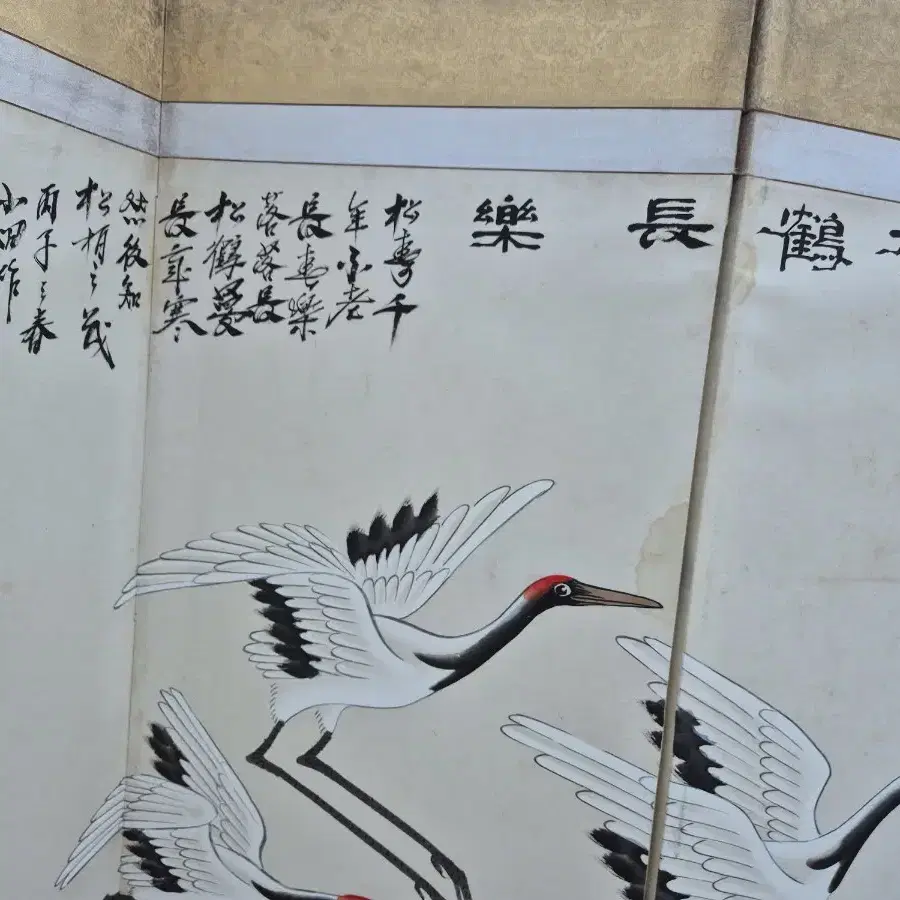 鶴長樂
松壽千
年不老
長樂
落落長
松鶴
長歲寒
然後知
松栢之茂
丙子之春
作